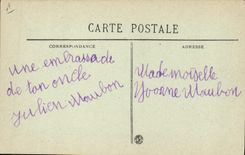 CARTE POSTALE
CORRESPONDANCE
ADRESSE
Une embrassade
de ton oncle
Julien Maubon
Mademoiselle
Yvonne Maubon